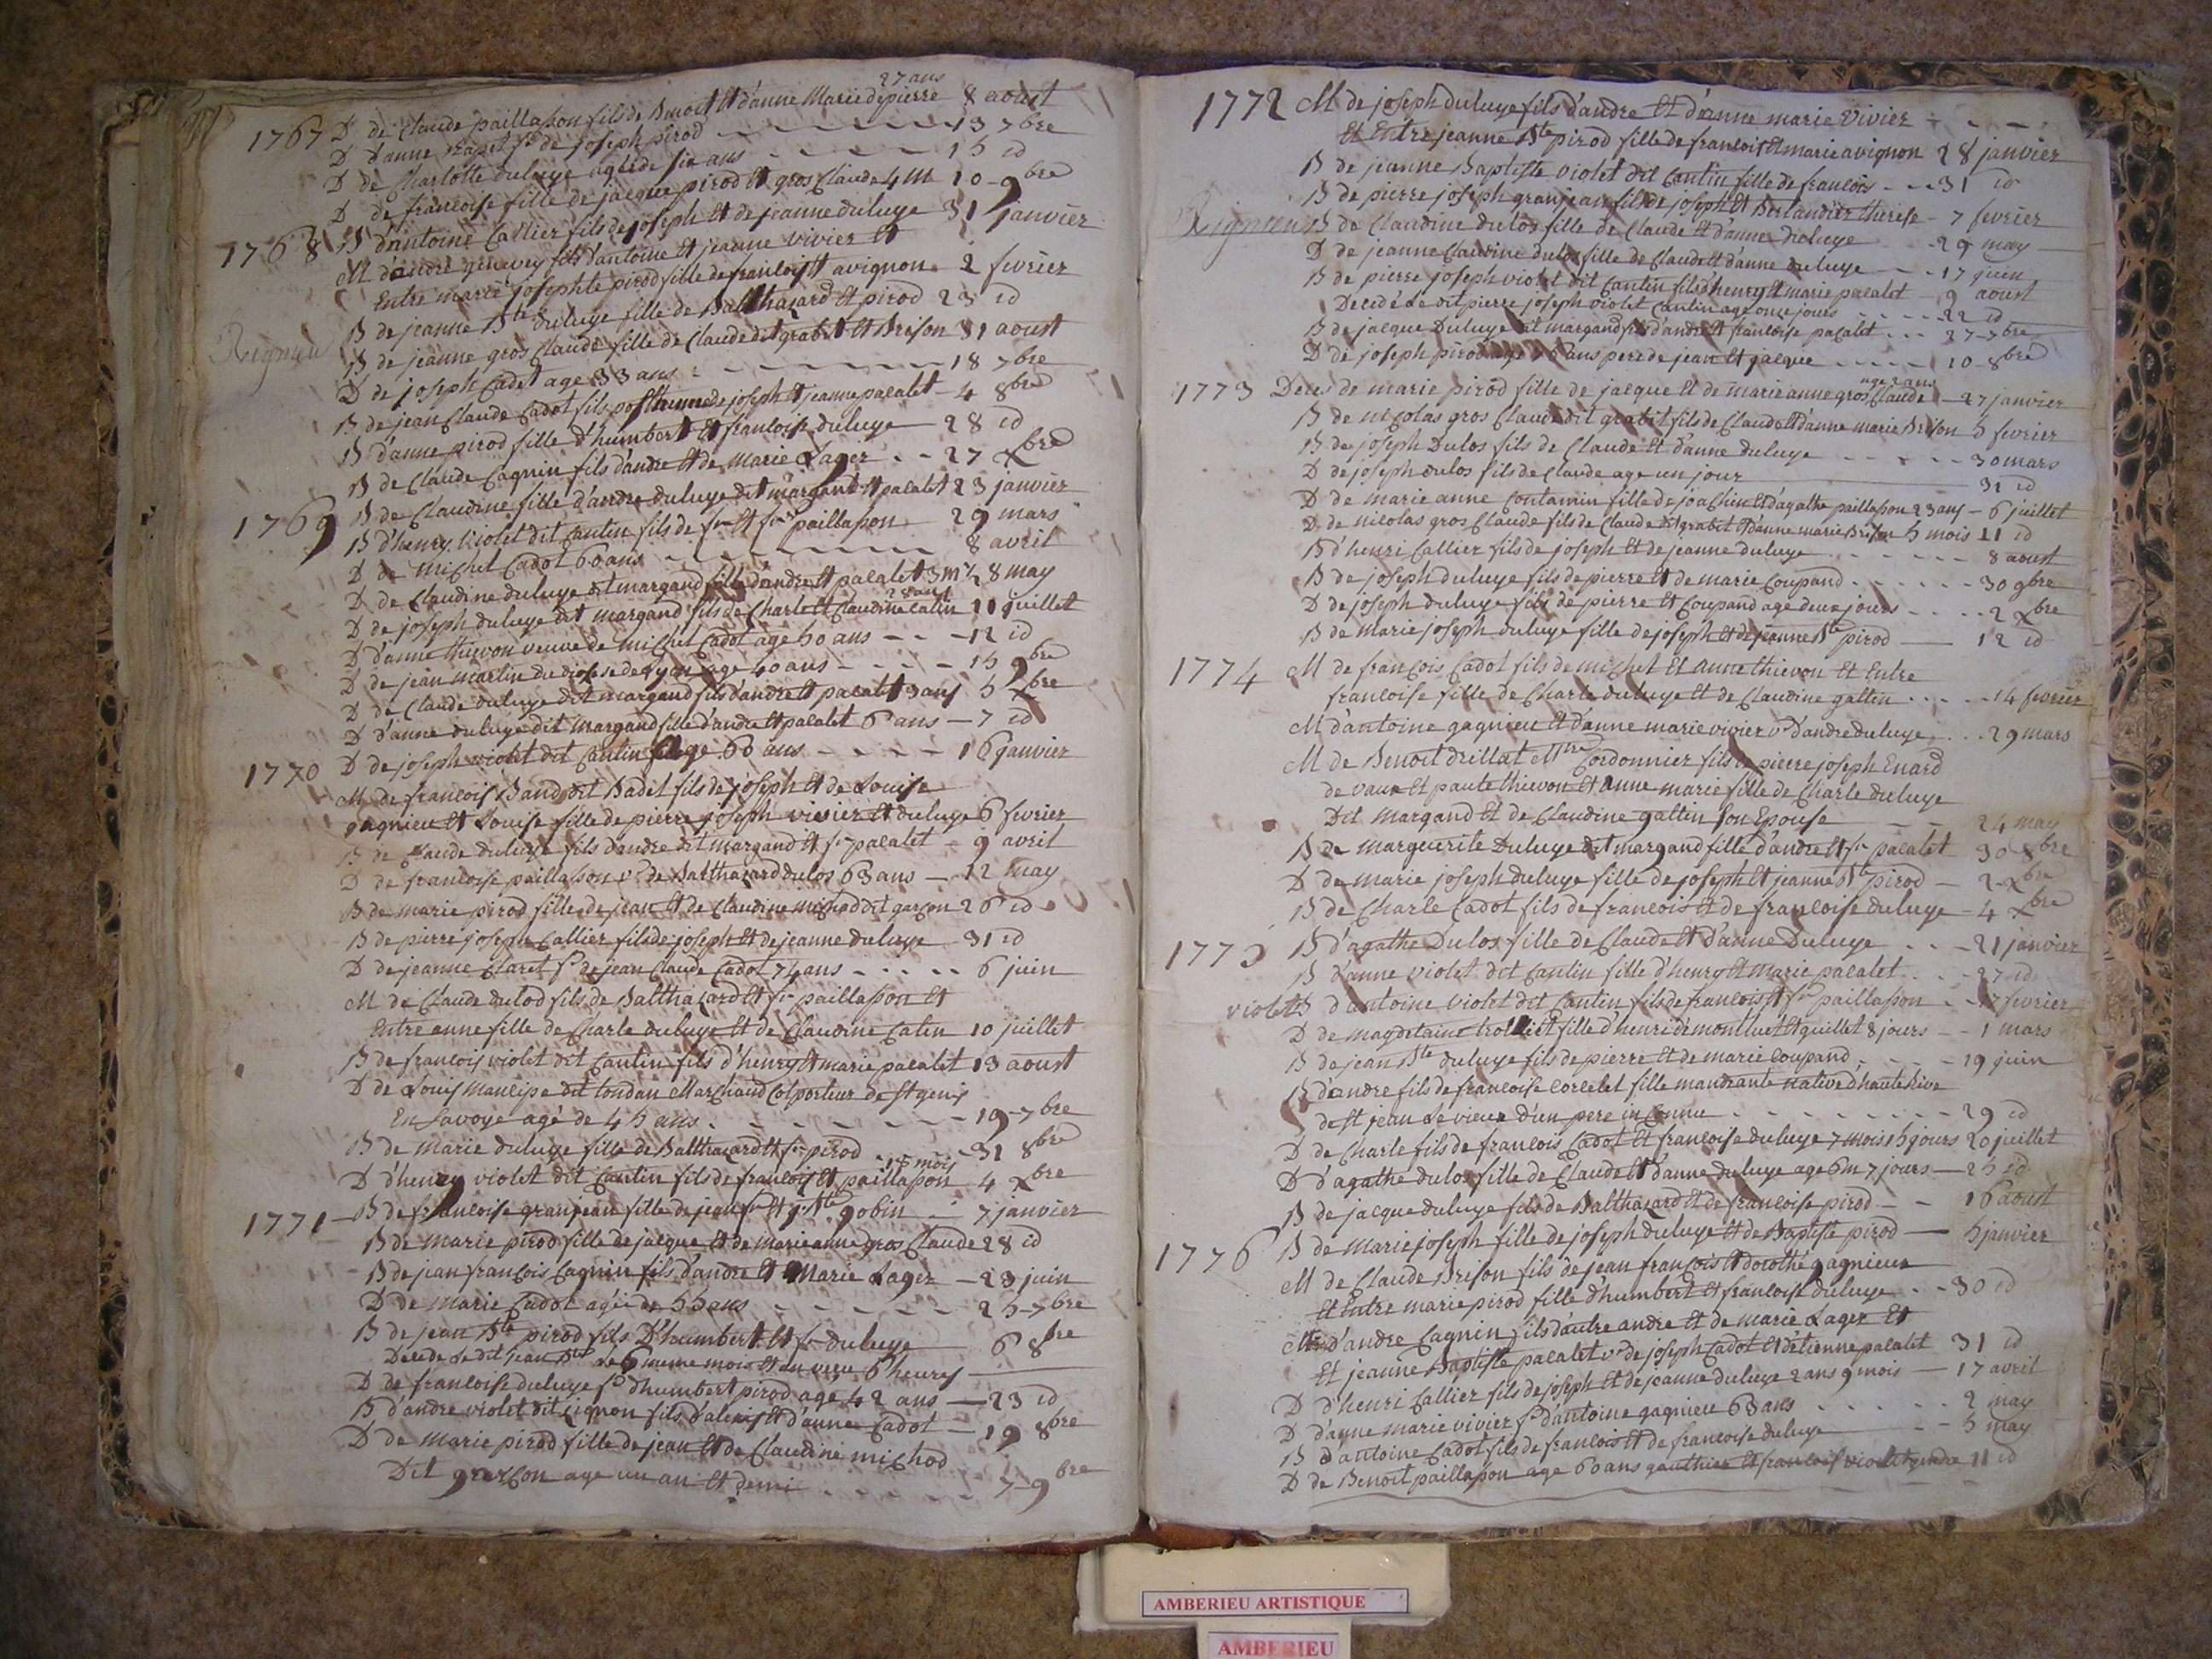 27 ans
1767 D de Claude paillasson fils de Benoit Et d'anne Marie depierre 8 aoust
D d'anne fe de joseph pirod 13 7bre
D de Charlotte duluye agée de six ans 15 id
D de francoise fille de jacque pirod Et gros Claude 4 m 10 9bre
1768 B d'antoine Callier fils de joseph Et de jeanne duluye 31 janvier
M d'andré genevey fils d'antoine et jeanne vivier Et
Entre marie josephte pirod fille de francois Et avignon 2 fevrier
B de jeanne Bte duluye fille de Balthazard Et pirod 23 id
Rignieu B de jeanne gros Claude fille de Claude dit grabit Et Brison 31 aoust
D de joseph Cadot age 33 ans 18 7bre
B de jean Claude Cadot fils posthume de joseph Et jeanne pacalet 4 8bre
B d'anne pirod fille d'humbert Et francoise duluye 28 id
B de Claude Cagnin fils d'andre Et de Marie Lager 27 Xbre
1769 B de Claudine fille d'andre duluye dit margand Et pacalet 23 janvier
B d'henry violet dit Cantin fils de fr Et fse paillasson 29 mars
D de Michel Cadot 60 ans 8 avril
D de Claudine duluye dit margand fille d'andre Et pacalet 3 m 1/2 8 may
28 ans
D de joseph duluye dit margand fils de Charle Et Claudine Catin 11 juillet
D d'anne thievon veuve de michel Cadot age 50 ans 12 id
D de jean martin du diocese de lyon age 40 ans 15 9bre
D de Claude duluye dit margand fils d'andre Et pacalet 3 ans 5 Xbre
D d'anne duluye dit margand fille d'andre Et pacalet 6 ans 7 id
1770 D de joseph violet dit Cantin age 60 ans 16 janvier
M de francois Band dit Badel fils de joseph Et de Louise
gagnieu Et Louise fille de pierre joseph vivier Et duluye 6 fevrier
B de Claude duluye fils d'andre dit margand Et fse pacalet 9 avril
D de francoise paillasson ve de Balthazard dulos 63 ans 12 may
B de marie pirod fille de jean Et de Claudine michod dit garcon 26 id
B de pierre joseph Callier fils de joseph Et de jeanne duluye 31 id
D de jeanne Claret fe de jean Claude Cadot 74 ans 6 juin
M de Claude dulod fils de Balthazard Et fse paillasson Et
Entre anne fille de Charle duluye Et de Claudine Catin 10 juillet
B de francois violet dit Cantin fils d'henry Et marie pacalet 13 aoust
D de Louis Mancipe dit tondan Marchand Colporteur de St genis
En Savoye agé de 45 ans 19 7bre
B de Marie duluye fille de Balthazard Et fse pirod 31 8bre
18 mois
D d'henry violet dit Cantin fils de francois Et paillasson 4 Xbre
1771 B de francoise granjean fille de jean fr Et j. Bte gobin 7 janvier
B de Marie pirod fille de jacque Et de Marie anne gros Claude 28 id
B de jean francois Cagnin fils d'andre Et Marie Lager 23 juin
D de Marie Cadot agée de 55 ans 25 7bre
B de jean Bte pirod fils D'humbert Et fse duluye 6 8bre
Decede Le dit jean Bte Le 6 meme mois Et an vécu 6 heures
D de francoise duluye fe d'humbert pirod age 42 ans 23 id
B d'andre violet dit fils d'alexis Et d'anne Cadot 19 8bre
D de Marie pirod fille de jean Et de Claudine michod
Dit garcon age un an Et demi 7 9bre
1772 M de joseph duluye fils d'andre Et d'anne marie vivier
Et Entre jeanne Bte pirod fille de francois Et marie avignon 28 janvier
B de jeanne Baptiste violet dit Cantin fille de francois 31 id
B de pierre joseph granjean fils de joseph Et Berlandier therese 7 fevrier
Rignieu B de Claudine dulos fille de Claude Et d'anne duluye 29 may
D de jeanne Claudine dulos fille de Claude Et d'anne duluye 17 juin
B de pierre joseph violet dit Cantin fils d'henry Et marie pacalet 9 aoust
Decedé Le dit pierre joseph violet Cantin age onze jours 22 id
B de jacque Duluye dit margand fils d'andre Et francoise pacalet 27 7bre
D de joseph pirod age ans pere de jean Et jacque 10 8bre
age 2 ans
1773 Deces de marie pirod fille de jacque Et de marie anne gros Claude 27 janvier
B de nicolas gros Claude dit grabit fils de Claude Et d'anne marie Brison 5 fevrier
B de joseph Dulos fils de Claude Et d'anne duluye 30 mars
D de joseph dulos fils de Claude age un jour 31 id
D de marie anne Contamin fille de joachim Et d'agathe paillasson 23 ans 6 juillet
D de nicolas gros Claude fils de Claude dit grabit Et d'anne marie Brison 5 mois 11 id
B d'henri Callier fils de joseph Et de jeanne duluye 8 aoust
B de joseph duluye fils de pierre Et de marie Coupand 30 9bre
D de joseph duluye fils de pierre Et Coupand age deux jours 2 Xbre
B de Marie joseph duluye fille de joseph Et de jeanne Bte pirod 12 id
1774 M de francois Cadot fils de michel Et anne thievon Et Entre
francoise fille de Charle duluye Et de Claudine gattin 14 fevrier
M d'antoine gagnieu Et d'anne marie vivier ve d'andre duluye 29 mars
M de Benoit drillat Mtre Cordonnier fils de pierre joseph Enard
de vaux Et paute thievon Et Anne marie fille de Charle duluye
Dit Margand Et de Claudine gattin son Epouse 24 may
B de Marguerite Duluye dit margand fille d'andre Et fse pacalet 30 8bre
D de Marie joseph duluye fille de joseph Et jeanne Bte pirod 2 Xbre
B de Charle Cadot fils de francois Et de francoise duluye 4 Xbre
1775 B d'agathe Dulos fille de Claude Et d'anne Duluye 21 janvier
B d'anne violet dit Cantin fille d'henry Et Marie pacalet 27 id
violet B d'antoine violet dit Cantin fils de francois Et fse paillasson 17 fevrier
D de magdelaine fille d'henri de montluel Et guillet 8 jours 1 mars
B de jean Bte duluye fils de pierre Et de marie Coupand 19 juin
B d'andre fils de francoise Corcelet fille mandiante native d'hauterive
de St jean Le vieux D'un pere inconnu 29 id
D de Charle fils de francois Cadot Et francoise duluye 7 mois 15 jours 20 juillet
D d'agathe dulos fille de Claude Et d'anne duluye age 6 m 7 jours 25 id
B de jacque duluye fils de Balthazard Et de francoise pirod 16 aoust
1776 B de Marie joseph fille de joseph duluye Et de Baptiste pirod 5 janvier
M de Claude Brison fils de jean francois Et dorothé gagnieux
Et Entre marie pirod fille d'humbert Et francoise duluye 30 id
M d'andre Cagnin fils d'autre andre Et de marie Lager Et
Et jeanne Baptiste pacalet ve de joseph Cadot Et d'etienne pacalet 31 id
D d'henri Callier fils de joseph Et de jeanne duluye 2 ans 9 mois 17 avril
D d'anne marie vivier fe d'antoine gagnieu 63 ans 2 may
B d'antoine Cadot fils de francois Et de francoise duluye 5 may
D de Benoit paillasson age 60 ans gauthier Et francois violet gendre 11 id
AMBERIEU ARTISTIQUE
AMBERIEU